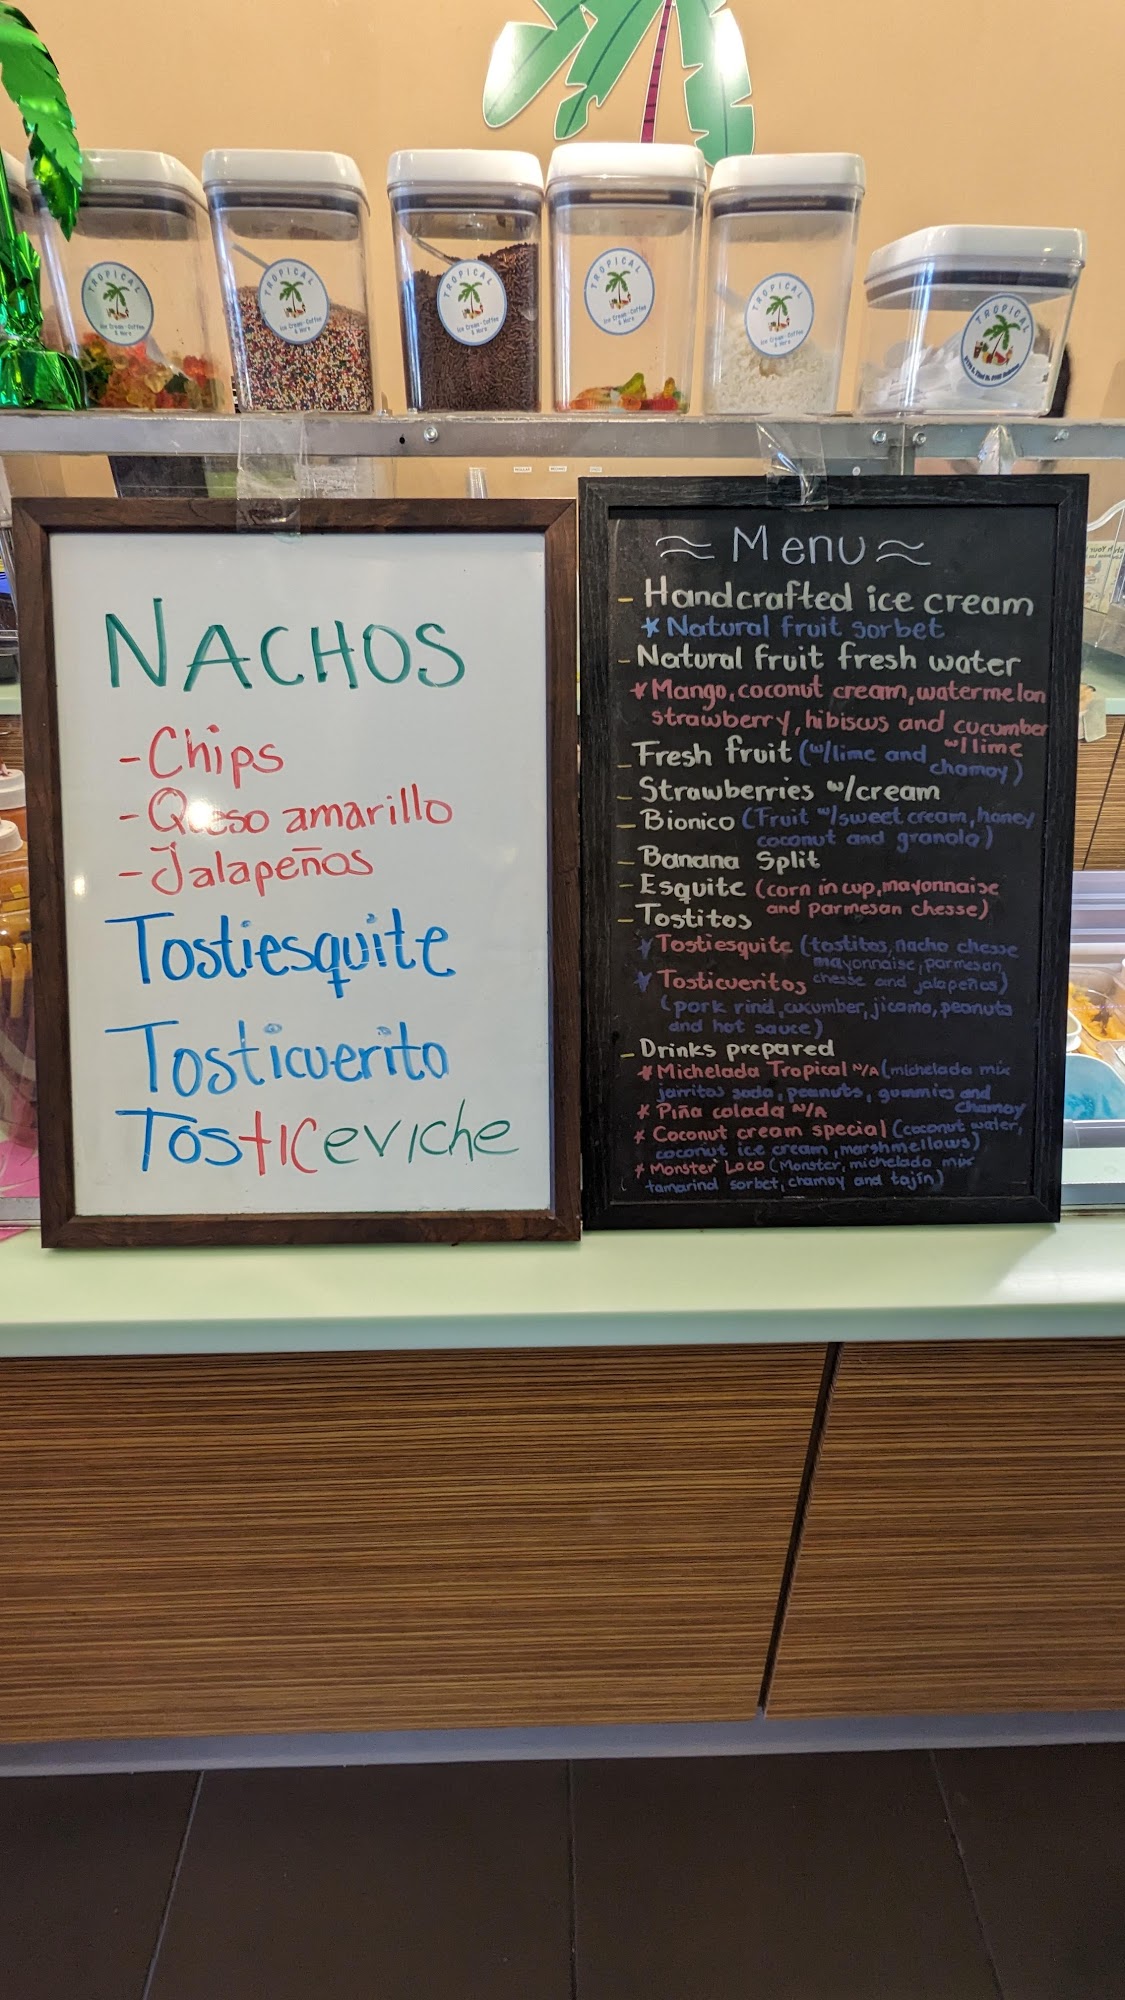 TROPICAL
Ice Cream-Coffee
& More
TROPICAL
Ice Cream-Coffee
& More
TROPICAL
Ice Cream-Coffee
& More
TROPICAL
Ice Cream-Coffee
& More
TROPICAL
Ice Cream-Coffee
& More
TROPICAL
NACHOS
-Chips
-Queso amarillo
-Jalapeños
Tostiesquite
Tosticuerito
Tosticeviche
≈ Menu ≈
- Handcrafted ice cream
* Natural fruit sorbet
- Natural fruit fresh water
* Mango, coconut cream, watermelon
strawberry, hibiscus and cucumber
w/lime
- Fresh fruit (w/lime and
chamoy)
- Strawberries w/cream
- Bionico (Fruit w/sweet cream, honey
coconut and granola)
- Banana Split
- Esquite (corn in cup, mayonnaise
and parmesan chesse)
- Tostitos
* Tostiesquite (tostitos, nacho chesse
mayonnaise, parmesan
chesse and jalapeños)
* Tosticueritos
(pork rind, cucumber, jicama, peanuts
and hot sauce)
- Drinks prepared
* Michelada Tropical N/A (michelada mix
jarritos soda, peanuts, gummies and
chamoy
* Piña colada N/A
* Coconut cream special (coconut water,
coconut ice cream, marshmellows)
* Monster Loco (Monster, michelada mix
tamarind sorbet, chamoy and tajín)